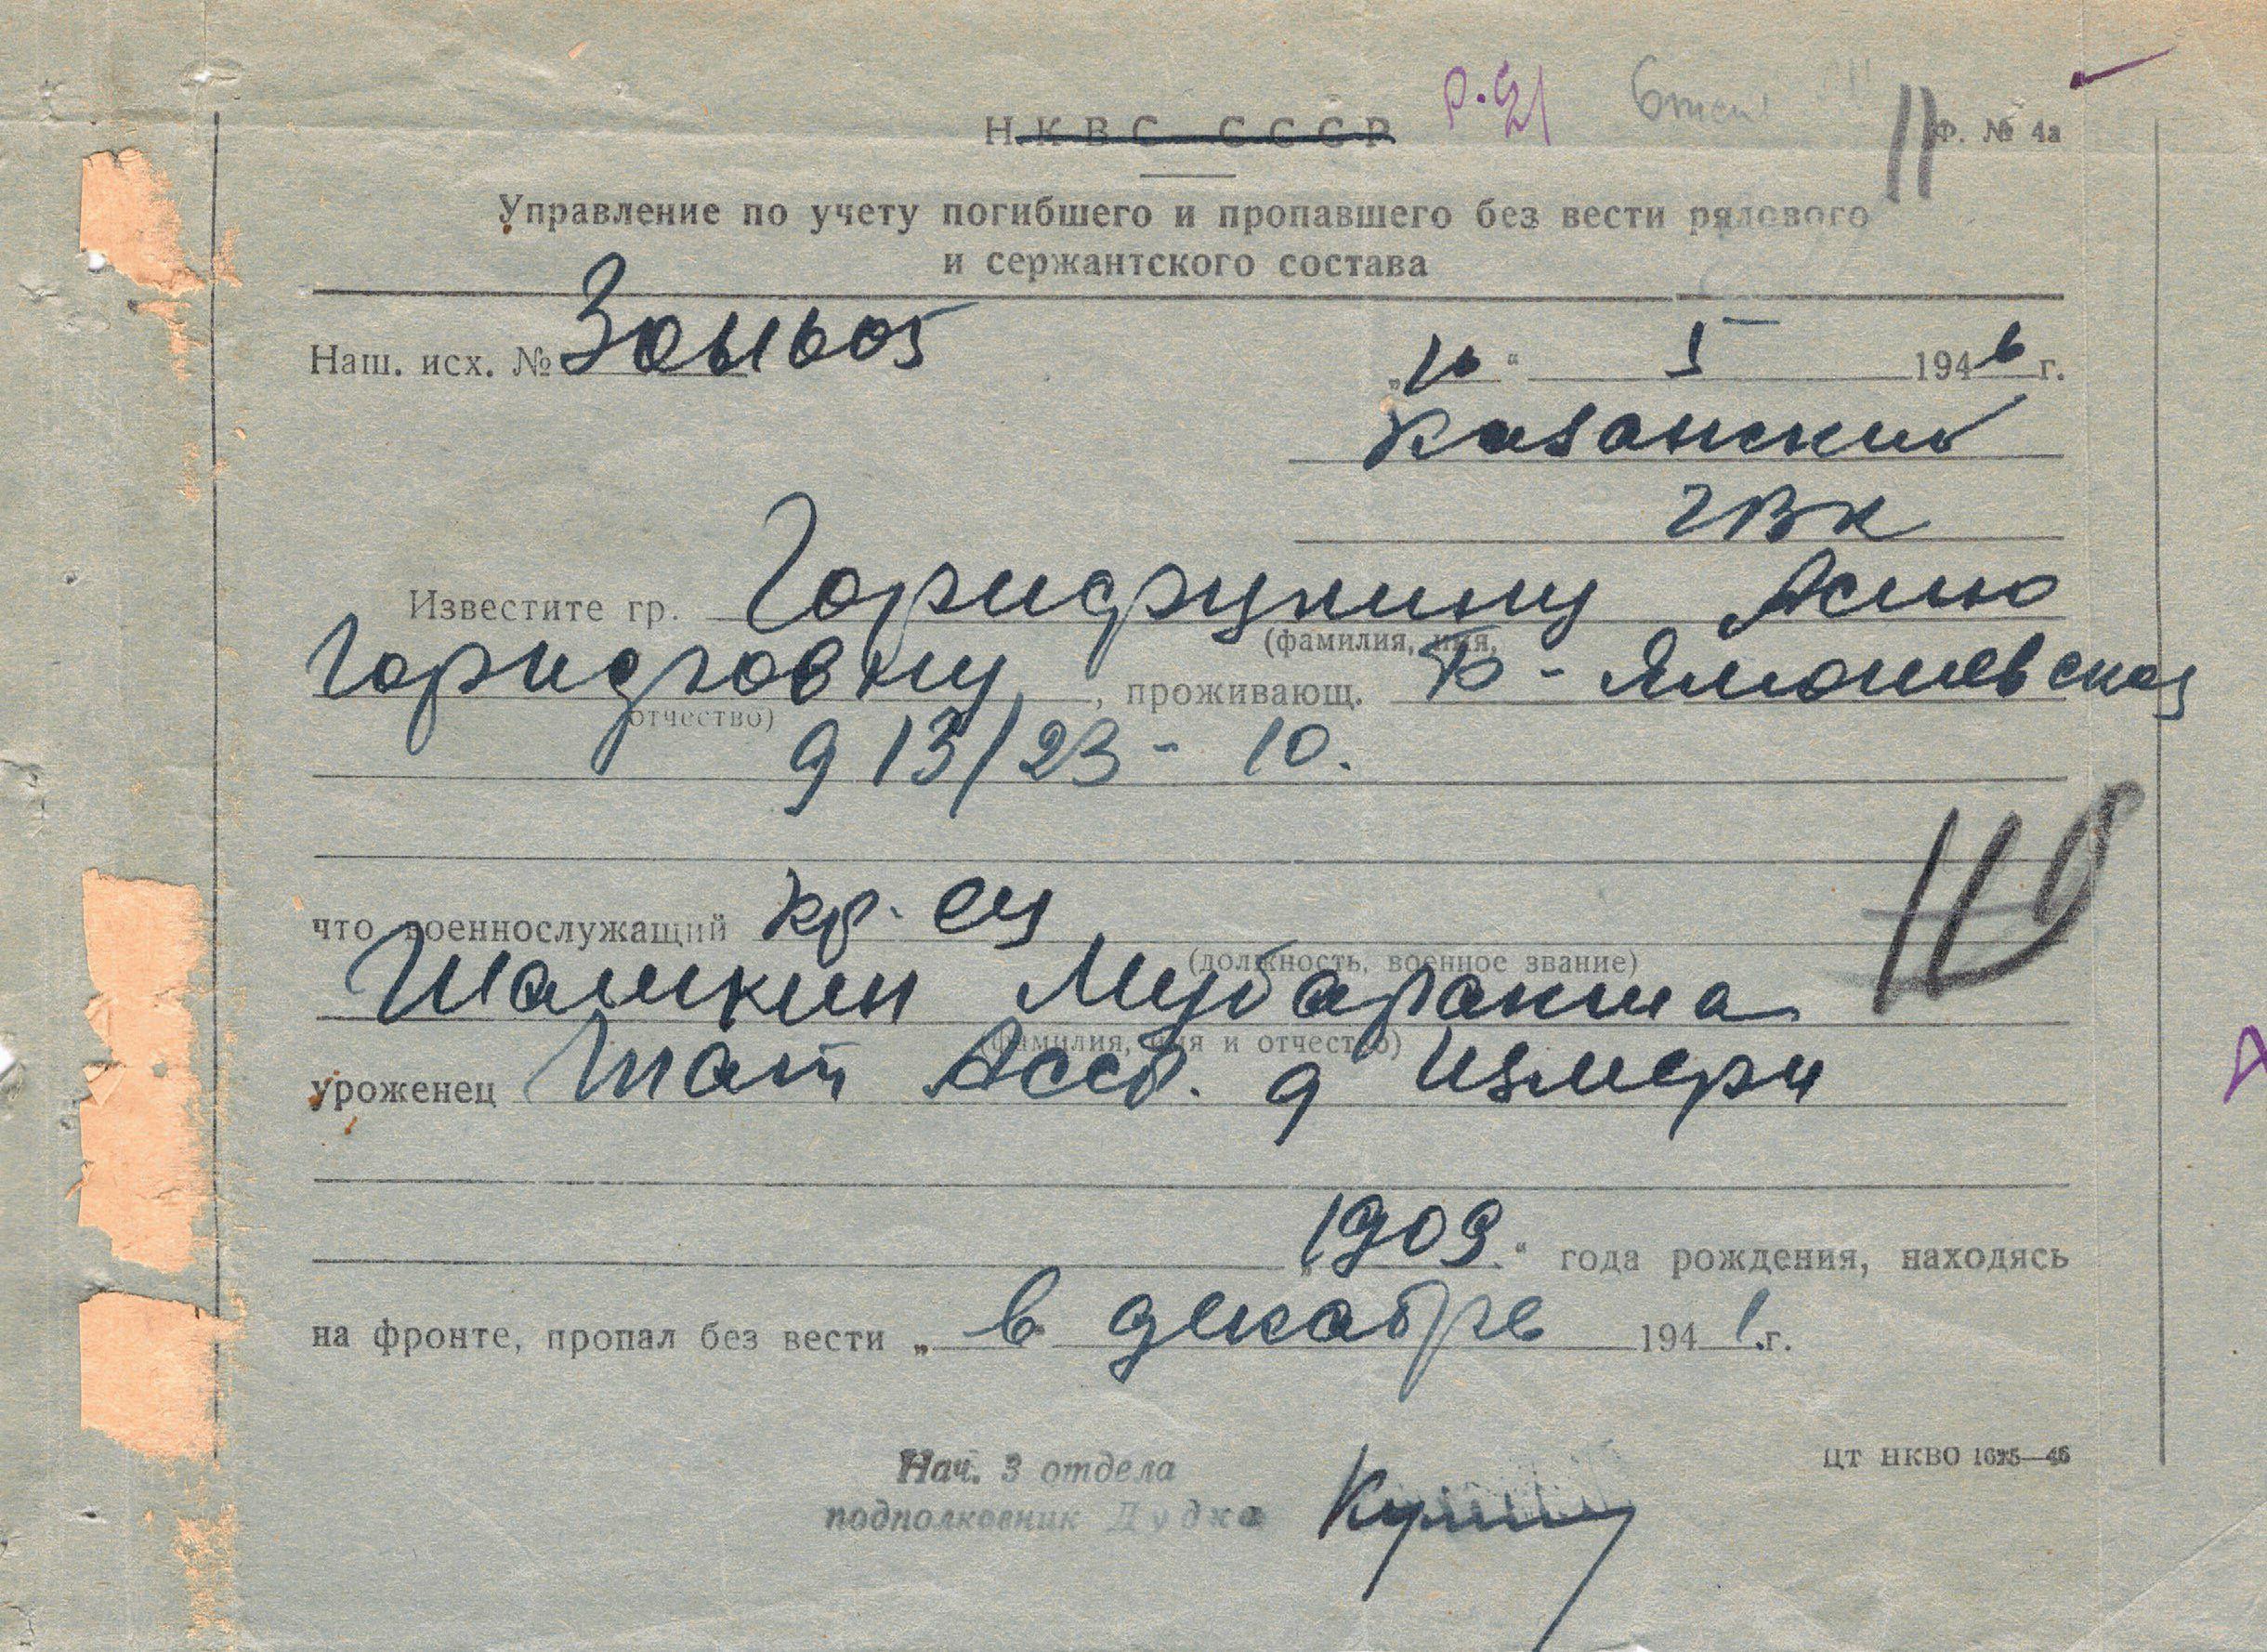 НКВС СССР
Ф. № 4а
Управление по учету погибшего и пропавшего без вести рядового
и сержантского состава
Наш. исх. №
„16“ V 1946 г.
Казанский
ГВК
Известите гр. Асию
(фамилия, имя,
, проживающ.
отчество)
д 13/23 - 10.
что военнослужащий кр-ец
(должность, военное звание)
Шамкин Мубаракша
(фамилия, имя и отчество)
уроженец Тат Асср. д Измери
„1909“ года рождения, находясь
на фронте, пропал без вести „ в декабре 1941 г.
ЦТ НКВО
Нач. 3 отдела
подполковник Дудка